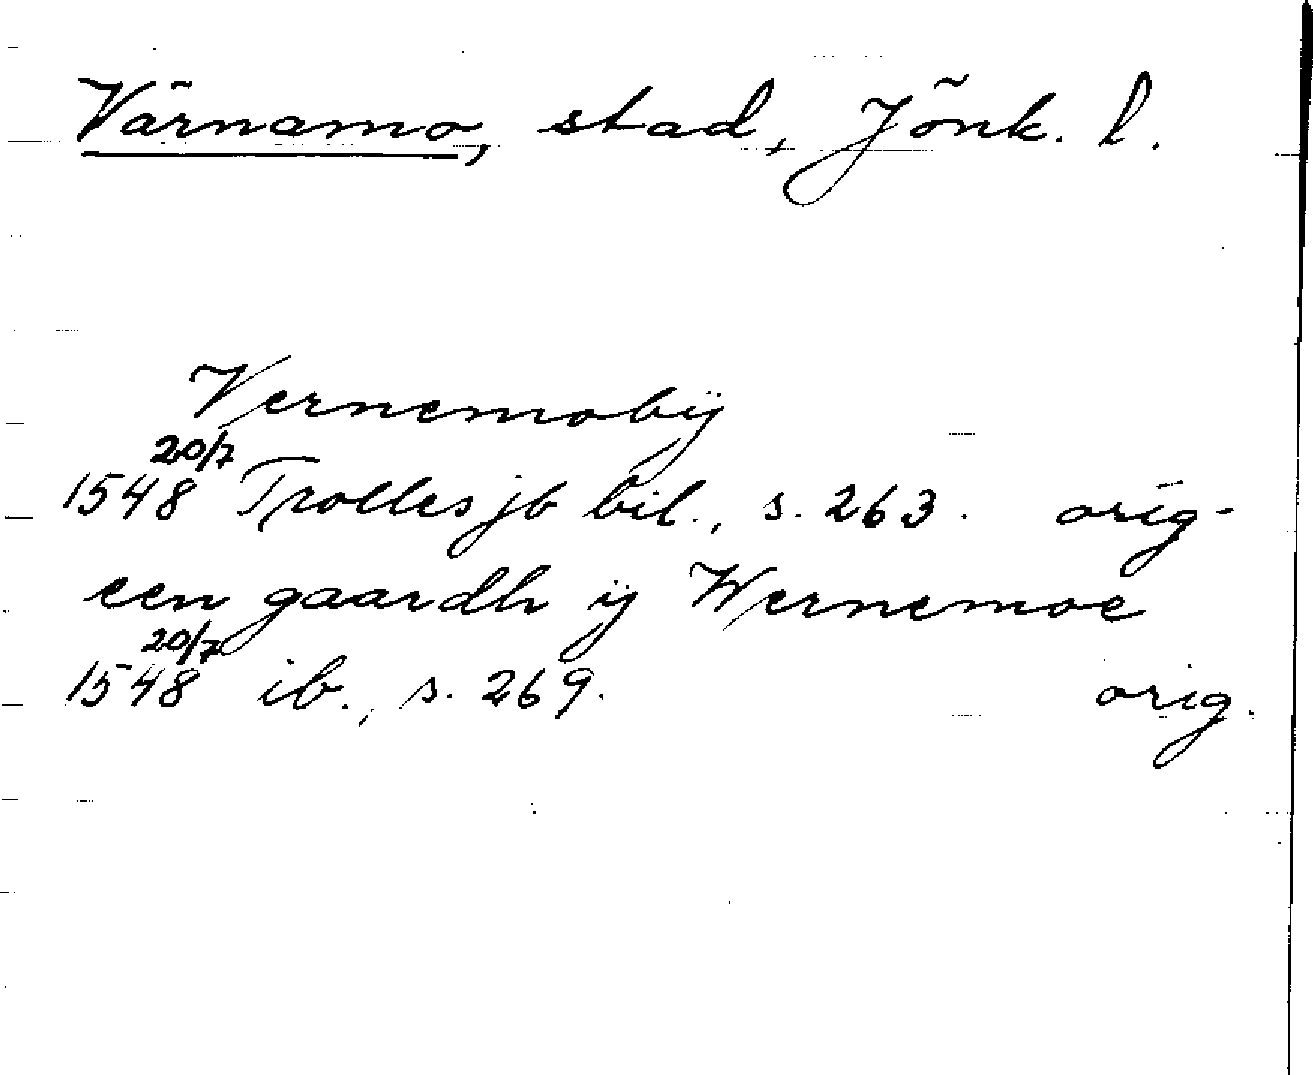 Värnamo, stad, Jönk. l.
Vernemobÿ
20/7
1548 Trolles jb bil., s. 263. orig.
een gaardh ÿ Wernemoe
20/7
1548 ib., s. 269. orig.